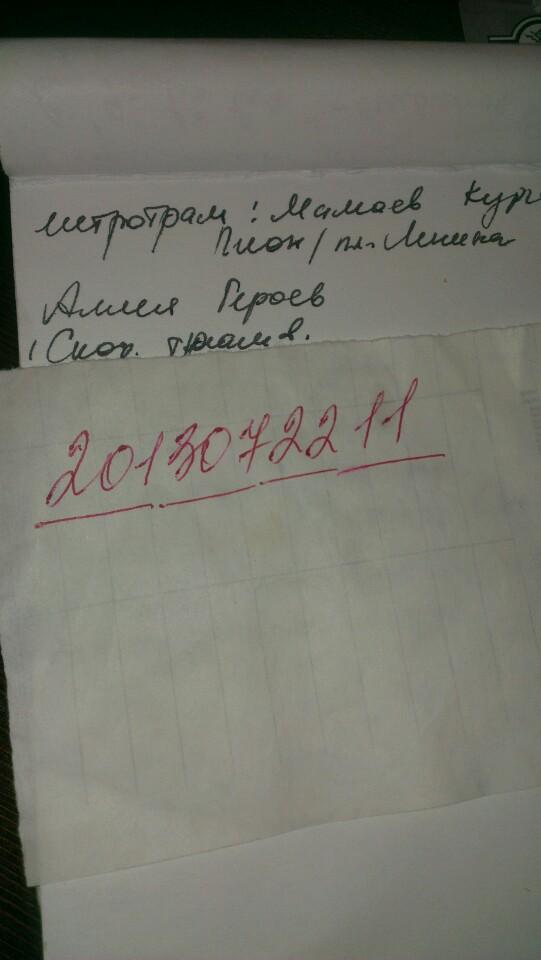 метротрам : Мамаев Кург
Пион / пл. Ленина
Аллея Героев
(Скор. трамв.
20130722 11